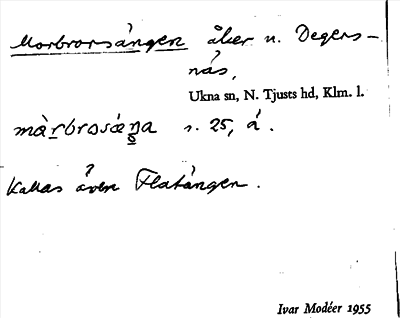 Morbrorsången åker u. Degers-
nås,
Ukna sn, N. Tjusts hd, Klm. l.
màrbrosáŋa s. 25, á.
Kallas även Flatången.
Ivar Modéer 1955